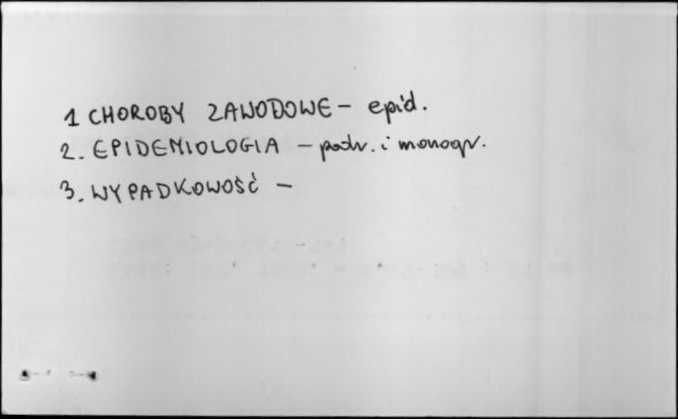 1 CHOROBY ZAWODOWE - epid.
2. EPIDEMIOLOGIA - podr. i monogr.
3. WYPADKOWOŚĆ -